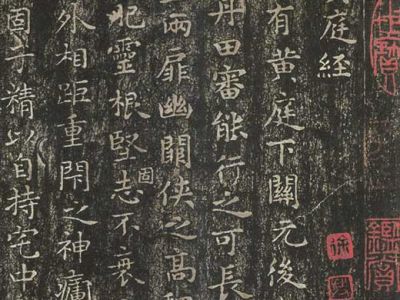 庭經
有黃庭下關元後
丹田審能行之可長
兩扉幽關俠之高
靈根堅志不衰
固
外相距重閇之神廬
固子精以自持宅中